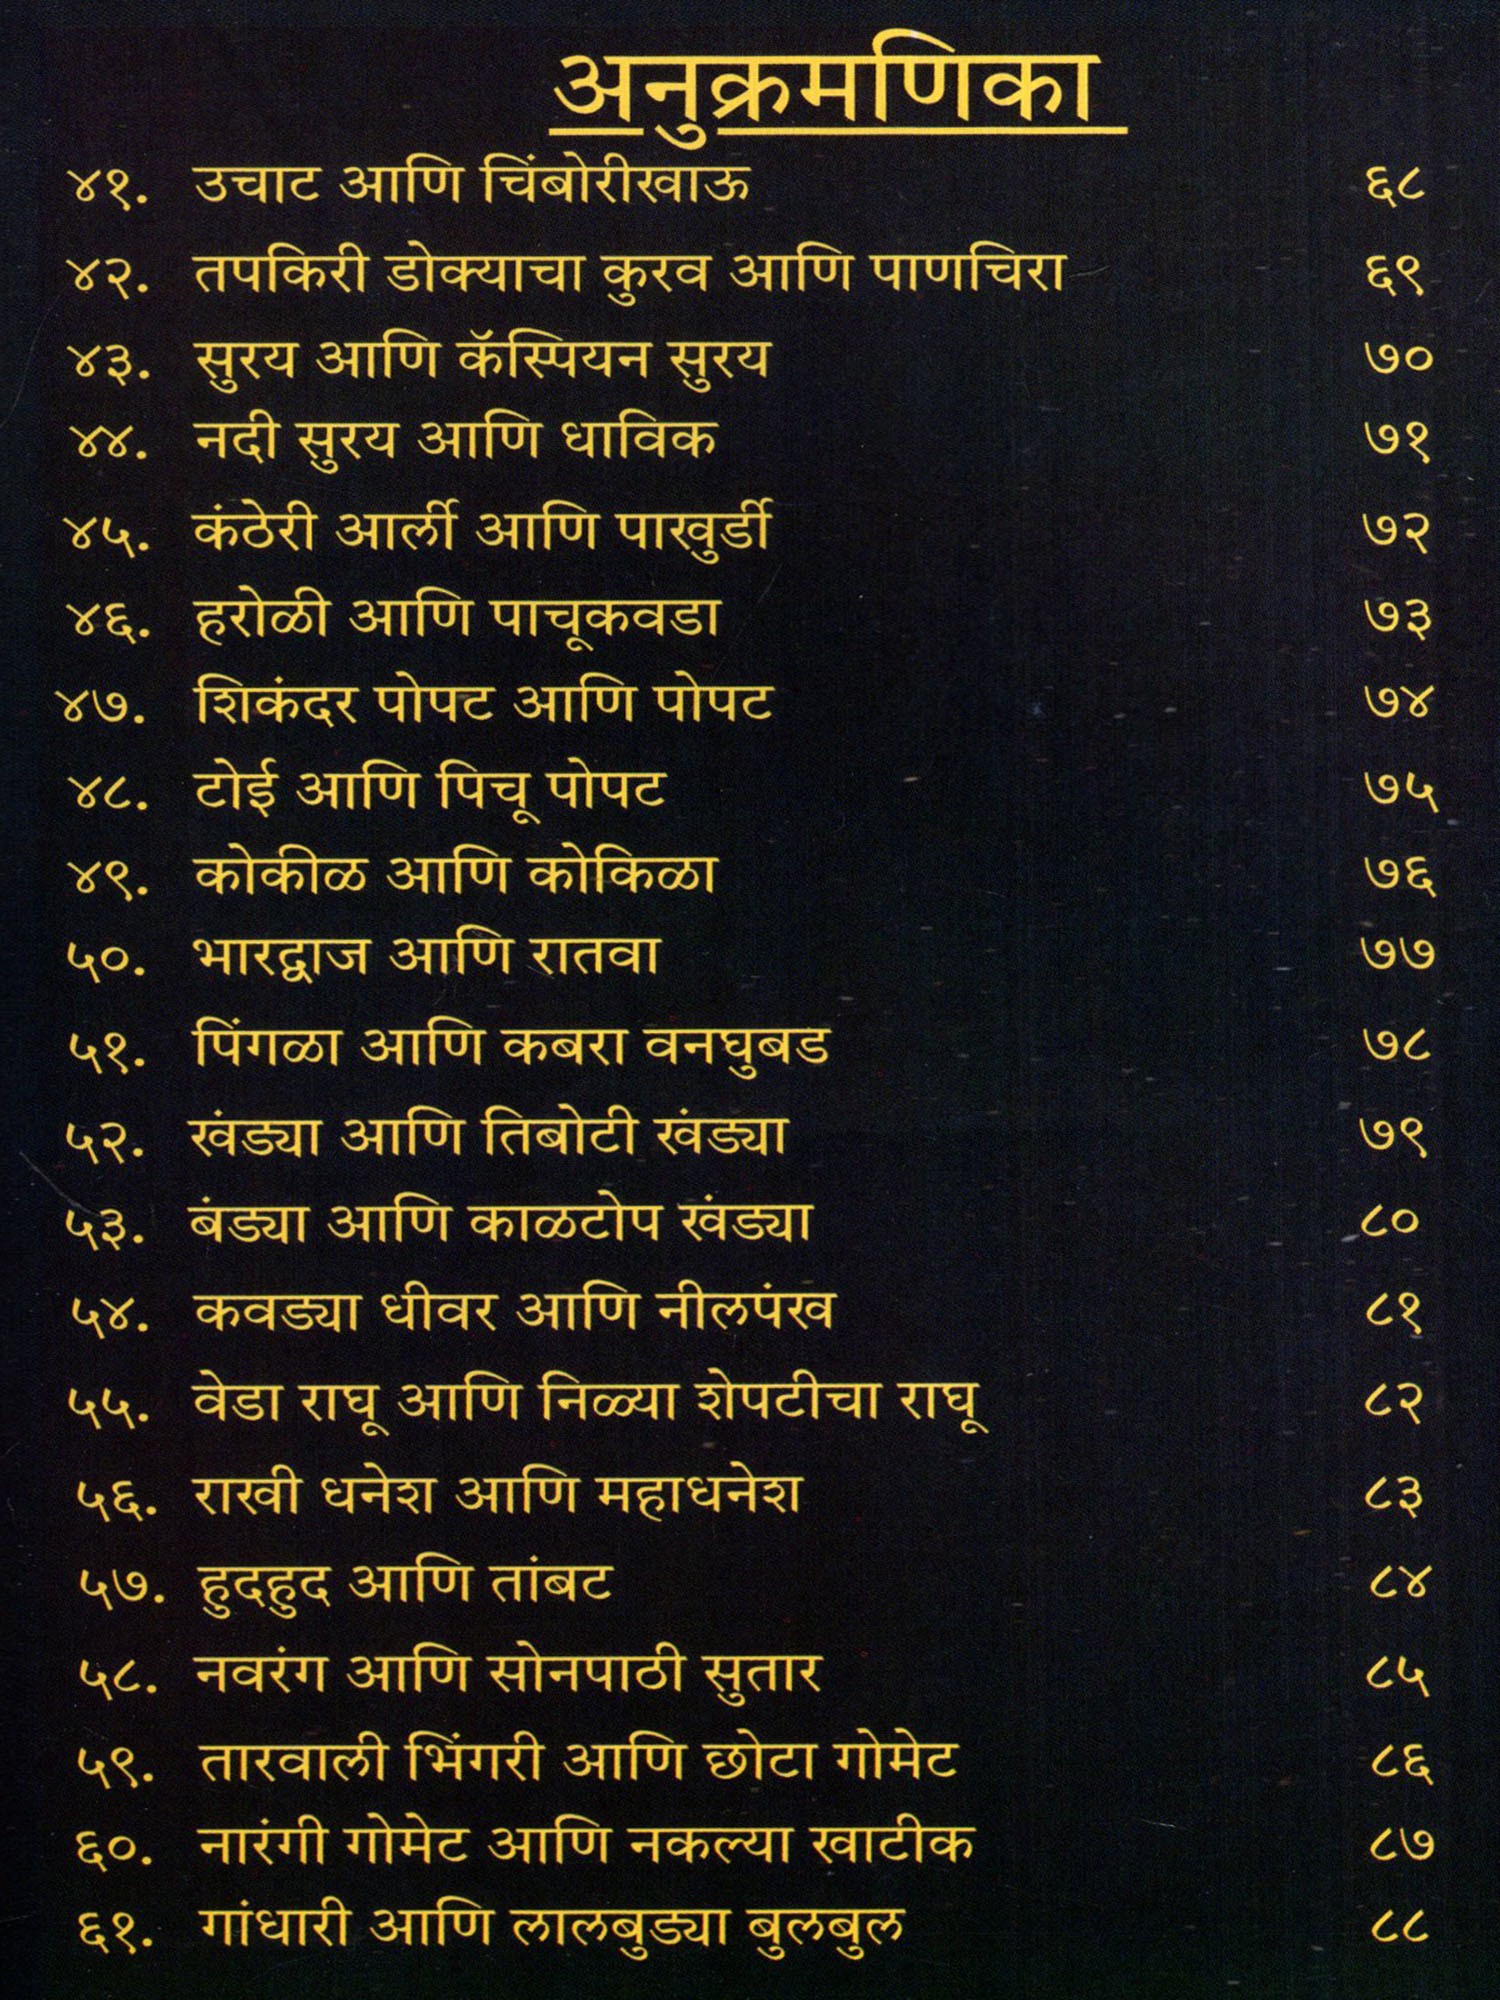 अनुक्रमणिका
४१. उचाट आणि चिंबोरीखाऊ ६८
४२. तपकिरी डोक्याचा कुरव आणि पाणचिरा ६९
४३. सुरय आणि कॅस्पियन सुरय ७०
४४. नदी सुरय आणि धाविक ७१
४५. कंठेरी आर्ली आणि पाखुर्डी ७२
४६. हरोळी आणि पाचूकवडा ७३
४७. शिकंदर पोपट आणि पोपट ७४
४८. टोई आणि पिचू पोपट ७५
४९. कोकीळ आणि कोकिळा ७६
५०. भारद्वाज आणि रातवा ७७
५१. पिंगळा आणि कबरा वनघुबड ७८
५२. खंड्या आणि तिबोटी खंड्या ७९
५३. बंड्या आणि काळटोप खंड्या ८०
५४. कवड्या धीवर आणि नीलपंख ८१
५५. वेडा राघू आणि निळ्या शेपटीचा राघू ८२
५६. राखी धनेश आणि महाधनेश ८३
५७. हुदहुद आणि तांबट ८४
५८. नवरंग आणि सोनपाठी सुतार ८५
५९. तारवाली भिंगरी आणि छोटा गोमेट ८६
६०. नारंगी गोमेट आणि नकल्या खाटीक ८७
६१. गांधारी आणि लालबुड्या बुलबुल ८८